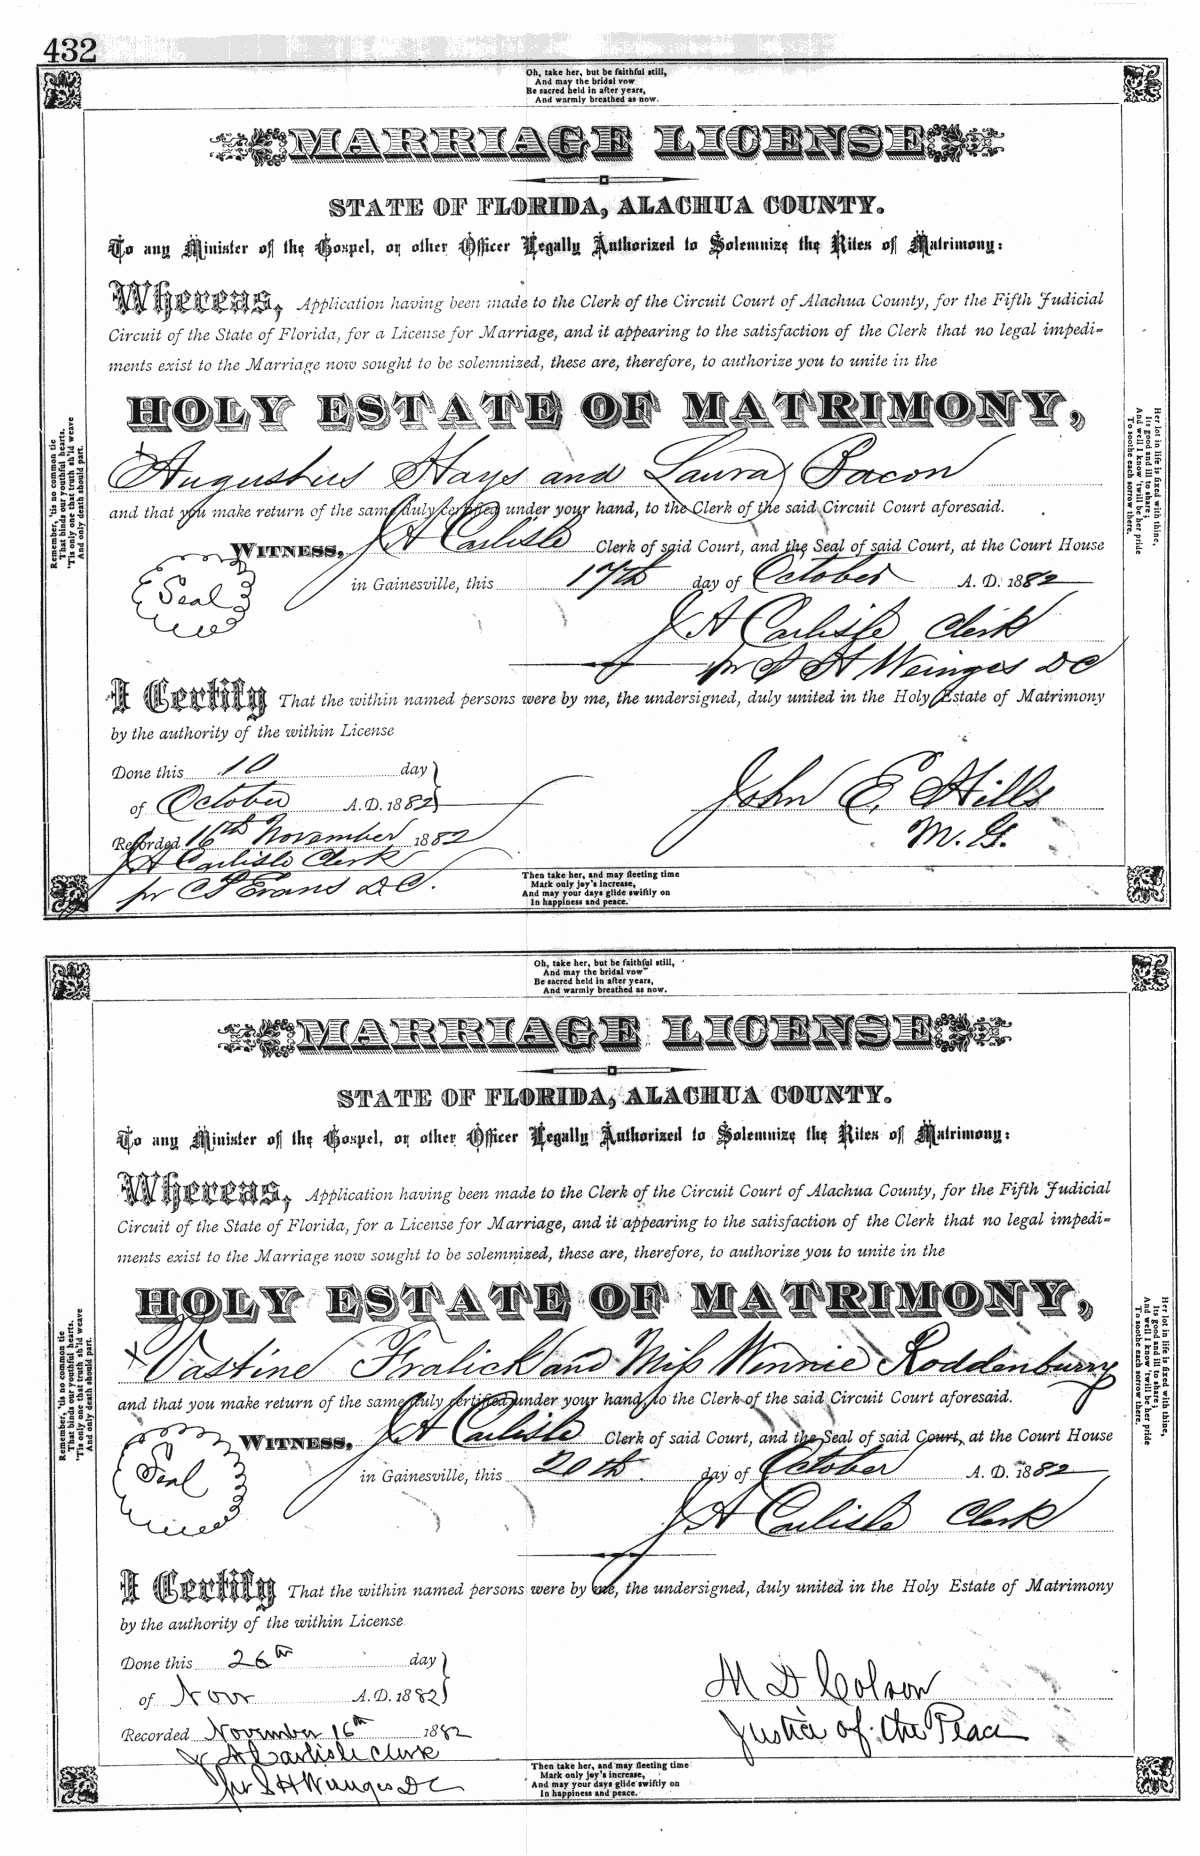 432
Oh, take her, but be faithful still,
And may the bridal vow
Be sacred held in after years,
And warmly breathed as now.
MARRIAGE LICENSE
STATE OF FLORIDA, ALACHUA COUNTY.
To any Minister of the Gospel, or other Officer Legally Authorized to Solemnize the Rites of Matrimony:
Whereas, Application having been made to the Clerk of the Circuit Court of Alachua County, for the Fifth Judicial
Circuit of the State of Florida, for a License for Marriage, and it appearing to the satisfaction of the Clerk that no legal impedi-
ments exist to the Marriage now sought to be solemnized, these are, therefore, to authorize you to unite in the
HOLY ESTATE OF MATRIMONY,
x Augustus Hays and Laura Bacon
and that you make return of the same duly certified under your hand, to the Clerk of the said Circuit Court aforesaid.
WITNESS, J A Carlisle Clerk of said Court, and the Seal of said Court, at the Court House
Seal
in Gainesville, this 17th day of October A. D. 1882
J A Carlisle Clerk
pr S H Weinges DC
I Certify That the within named persons were by me, the undersigned, duly united in the Holy Estate of Matrimony
by the authority of the within License
Done this 10 day
of October A. D. 1882
John E. Hills
M. G.
Recorded 16th November 1882
J A Carlisle Clerk
pr C P Evans D C.
Remember, 'tis no common tie
That binds our youthful hearts.
'Tis only one that truth sh'ld weave
And only death should part.
Her lot in life is fixed with thine,
Its good and ill to share;
And well I know 'twill be her pride
To soothe each sorrow there.
Then take her, and may fleeting time
Mark only joy's increase,
And may your days glide swiftly on
In happiness and peace.
Oh, take her, but be faithful still,
And may the bridal vow
Be sacred held in after years,
And warmly breathed as now.
MARRIAGE LICENSE
STATE OF FLORIDA, ALACHUA COUNTY.
To any Minister of the Gospel, or other Officer Legally Authorized to Solemnize the Rites of Matrimony:
Whereas, Application having been made to the Clerk of the Circuit Court of Alachua County, for the Fifth Judicial
Circuit of the State of Florida, for a License for Marriage, and it appearing to the satisfaction of the Clerk that no legal impedi-
ments exist to the Marriage now sought to be solemnized, these are, therefore, to authorize you to unite in the
HOLY ESTATE OF MATRIMONY,
x Vastine Fralick and Miss Winnie Roddenburry
and that you make return of the same duly certified under your hand, to the Clerk of the said Circuit Court aforesaid.
WITNESS, J A Carlisle Clerk of said Court, and the Seal of said Court, at the Court House
Seal
in Gainesville, this 20th. day of October A. D. 1882
J A Carlisle Clerk
I Certify That the within named persons were by me, the undersigned, duly united in the Holy Estate of Matrimony
by the authority of the within License
Done this 26th day
of Novr A. D. 1882
M D Colson
Justice of the Peace
Recorded November 16th 1882
J A Carlisle Clerk
pr S H Weinges D C
Remember, 'tis no common tie
That binds our youthful hearts.
'Tis only one that truth sh'ld weave
And only death should part.
Her lot in life is fixed with thine,
Its good and ill to share;
And well I know 'twill be her pride
To soothe each sorrow there.
Then take her, and may fleeting time
Mark only joy's increase,
And may your days glide swiftly on
In happiness and peace.